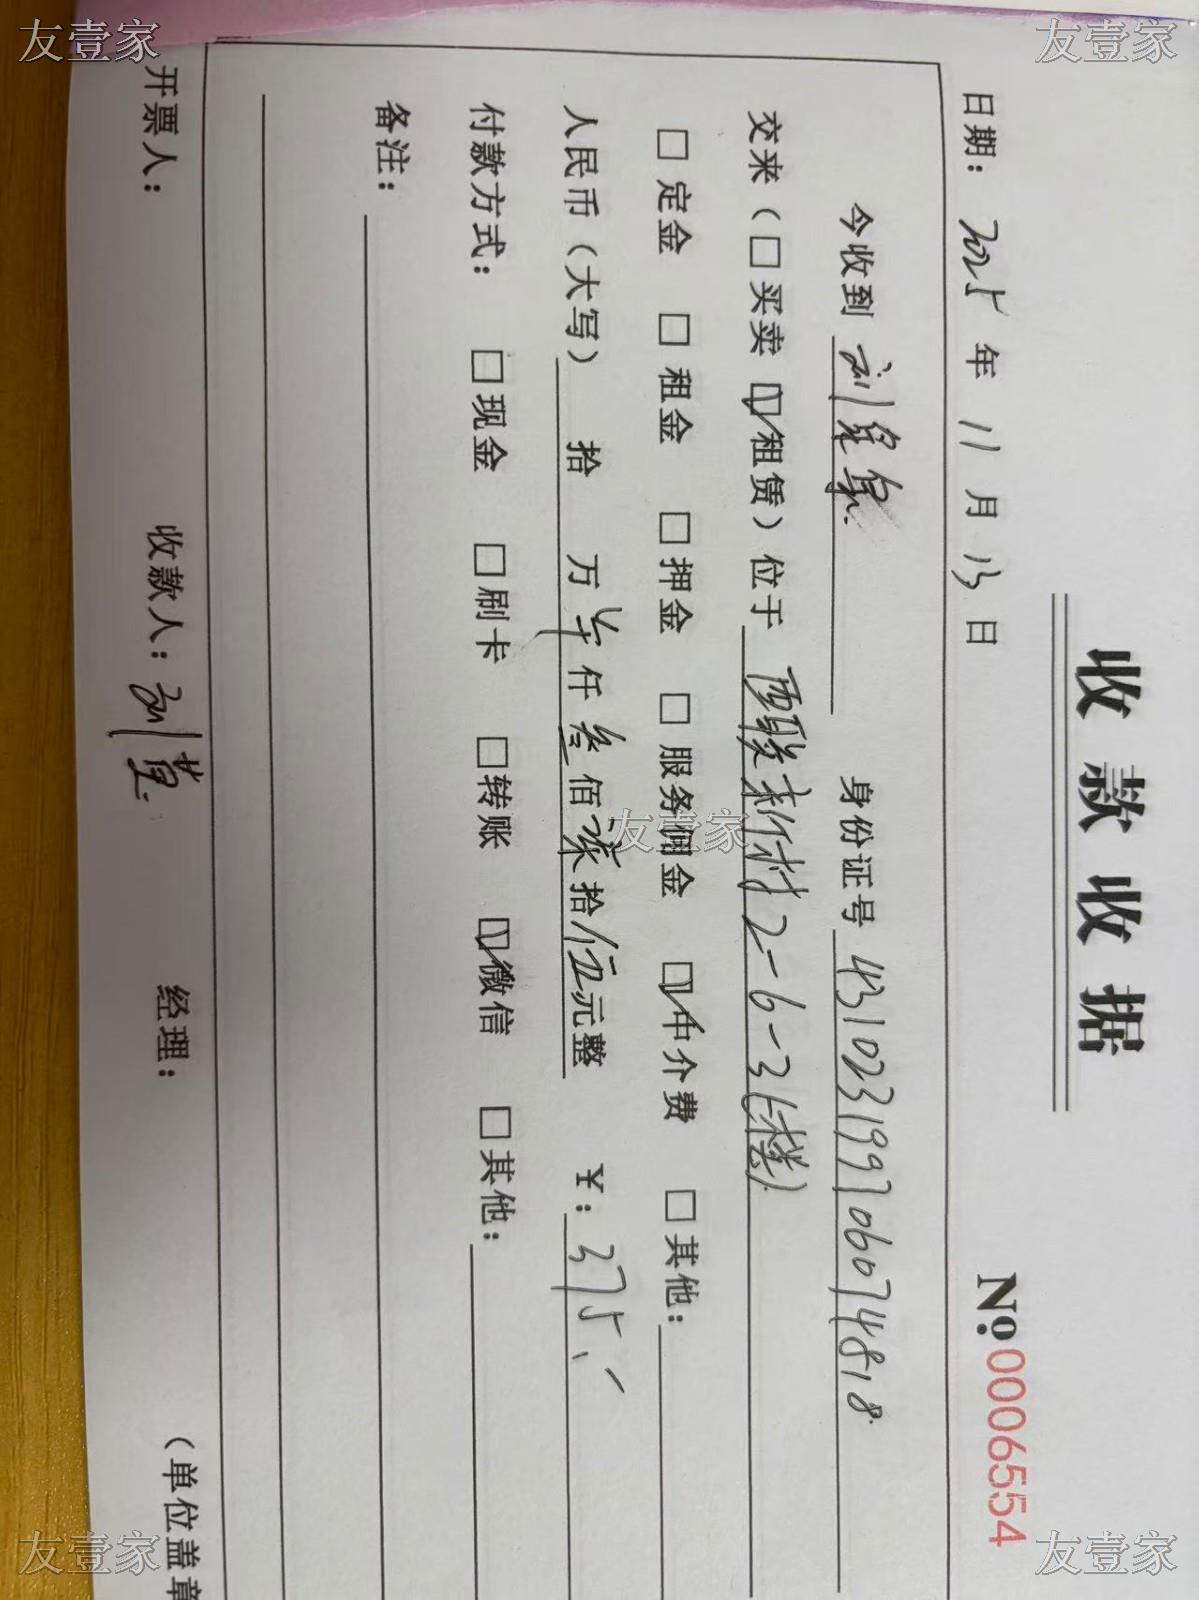 友壹家
友壹家
收款收据
№ 0006554
日期: 2025 年 11 月 13 日
今收到 身份证号 431023199706074818
交来(□买卖 ☑租赁)位于 酉酸新村2-6-3(楼)
□定金 □租金 □押金 □服务佣金 ☑中介费 □其他:
友壹家
人民币(大写) 拾 万 仟叁佰柒拾伍元整 ¥: 375、一
付款方式: □现金 □刷卡 □转账 ☑微信 □其他:
备注:
开票人: 收款人: 刘 经理: (单位盖章
友壹家
友壹家